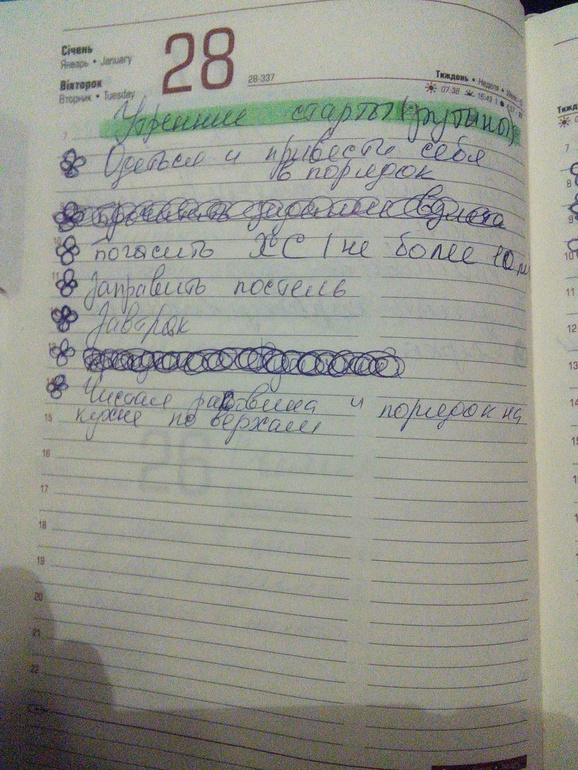 Січень
Январь • January
28
Вівторок
Вторник • Tuesday
28-337
Тиждень • Неделя •
07:38 16:49
7
Утренние старты (рутына)
Одеться и привести себя
в порядок
погасить ХС / не более 10 м
Заправить постель
Завтрак
Чистая раковина и порядок на
15
кухне по верхам
16
17
18
19
20
21
22